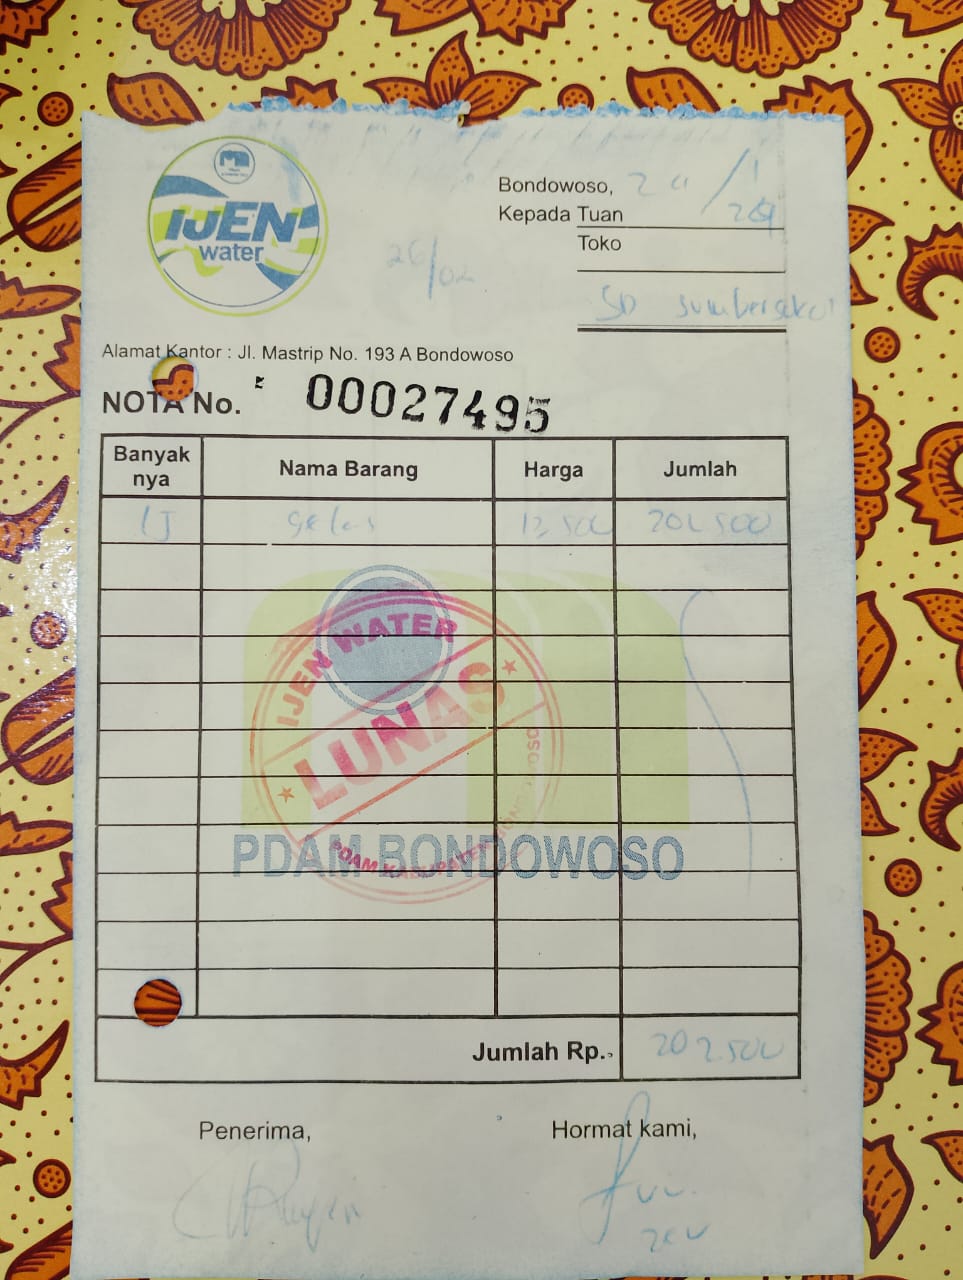 IJEN
water
Bondowoso, 24/1
Kepada Tuan
Toko
26/02
SD Sumber
Alamat Kantor : Jl. Mastrip No. 193 A Bondowoso
NOTA No. 00027495
Banyak nya Nama Barang Harga Jumlah
15 gelas 13.500 202.500
IJEN WATER
LUNAS
PDAM KABUPATEN BONDOWOSO
PDAM BONDOWOSO
Jumlah Rp. 202.500
Penerima, Hormat kami,